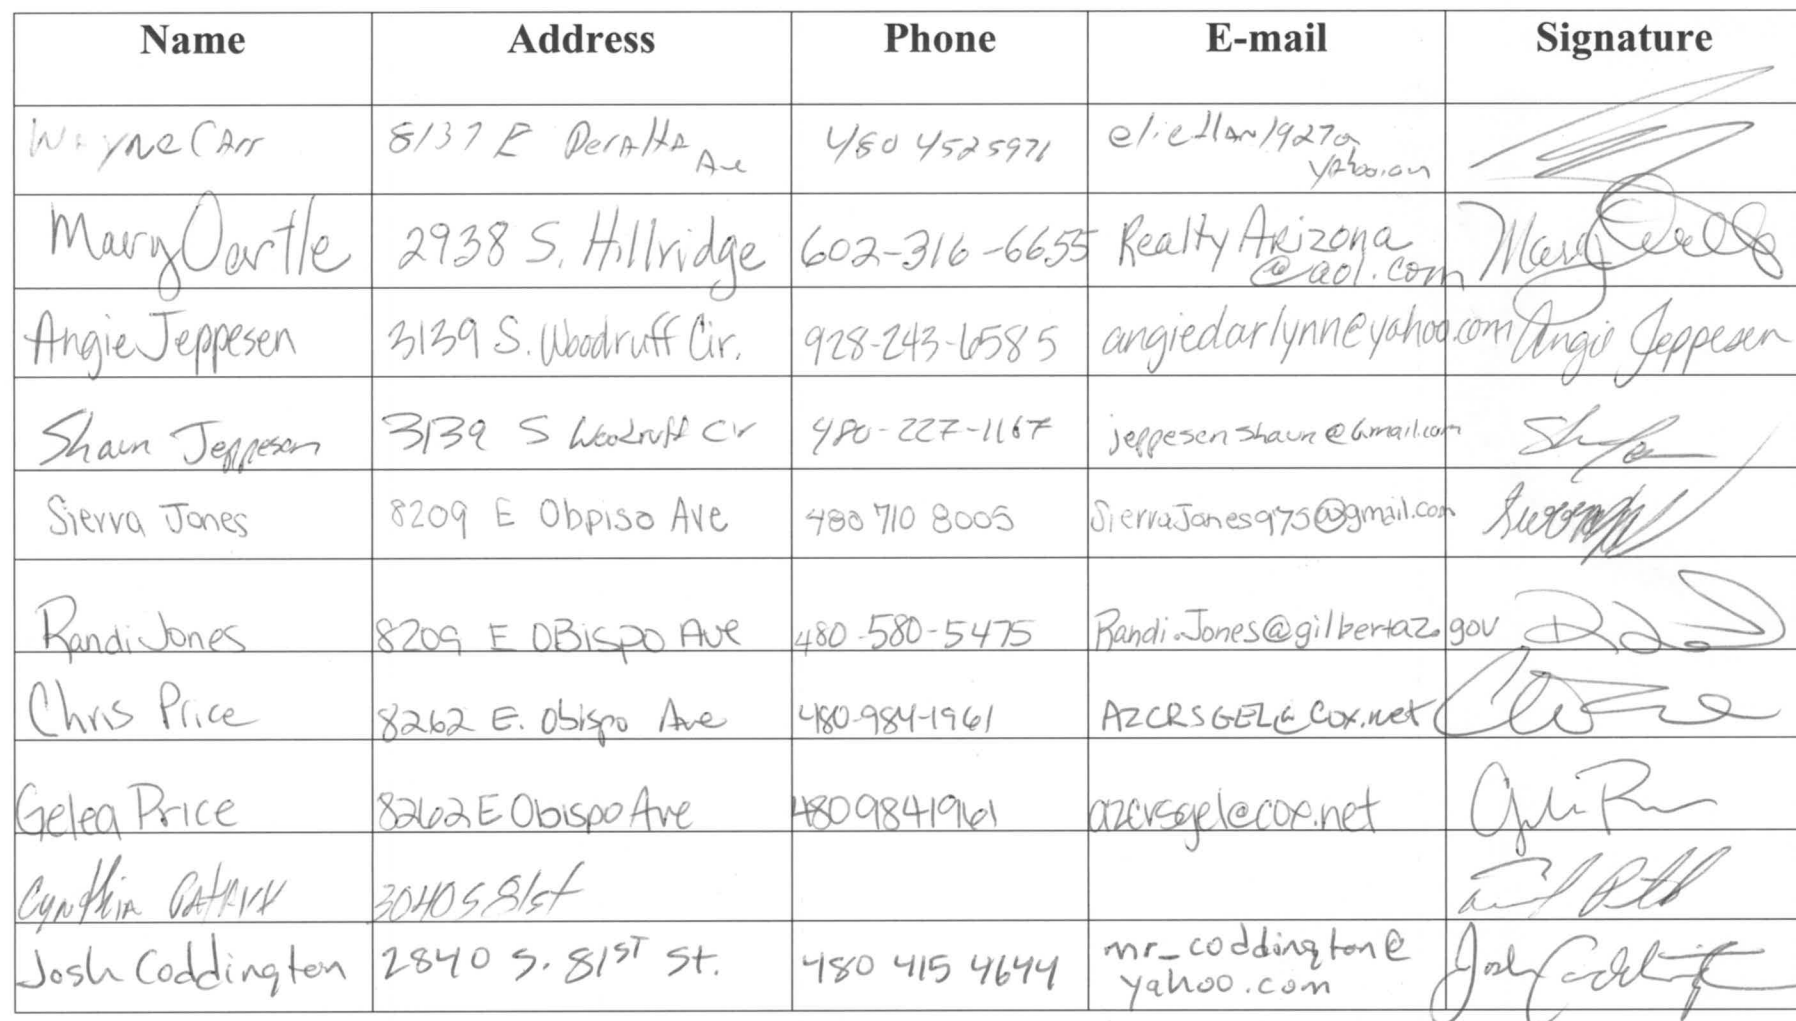 Name Address Phone E-mail Signature
Wayne Carr 8137 E Peralta Ave 480 4525971
yahoo.com
Mary Oartle 2938 S. Hillridge 602-316-6655 Realty Arizona
@aol.com Mary
Angie Jeppesen 3139 S. Woodruff Cir. 928-243-6585 angiedarlynn@yahoo.com Angie Jeppesen
Shaun Jeppesen 3139 S Woodruff Cir 480-227-1167 jeppesenshaun@Gmail.com
Sierra Jones 8209 E Obpiso Ave 480 710 8005 SierraJones975@gmail.com
Randi Jones 8209 E OBispo Ave 480-580-5475 Randi.Jones@gilbertaz.gov
Chris Price 8262 E. Obispo Ave 480-984-1961 AZCRSGEL@cox.net
Gelea Price 8262 E Obispo Ave 4809841961 azcrsgel@cox.net
Cynthia 3040 S 81st
Josh Coddington 2840 S. 81ST St. 480 415 4644 mr_coddington@
yahoo.com Josh Coddington